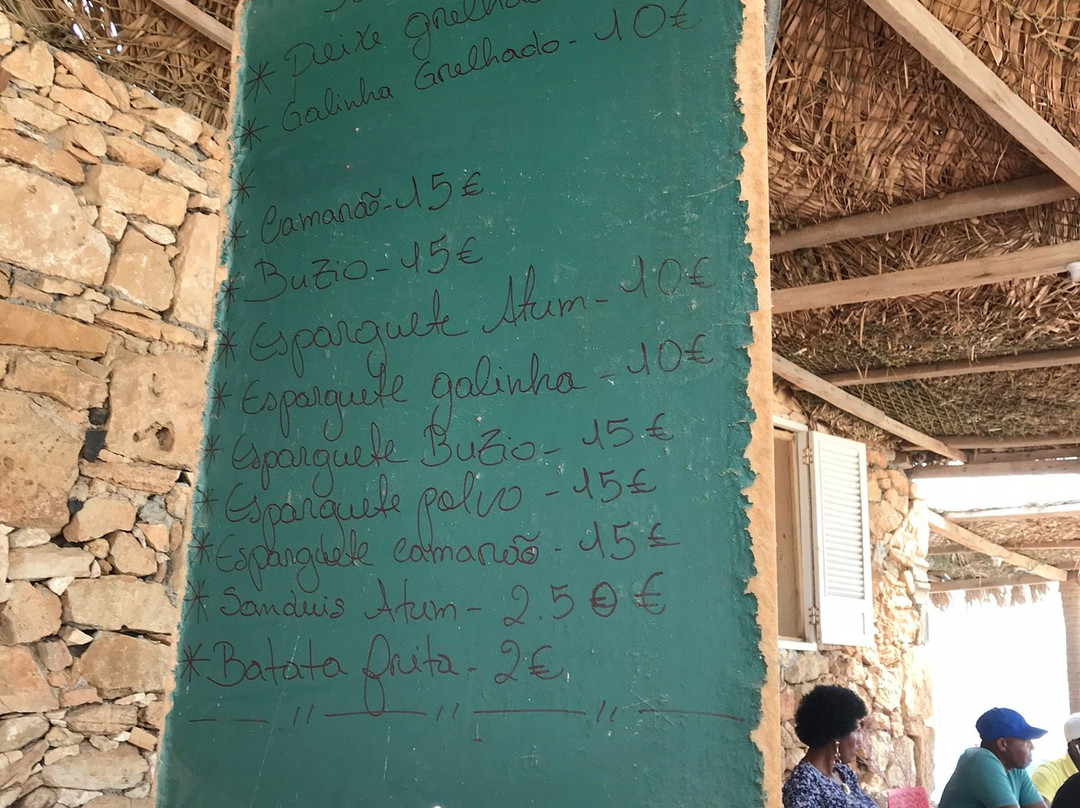 * Peixe grelha
* Galinha Grelhado - 10€
*
* Camarão - 15€
* BuZio - 15€
* Esparguete Atum - 10€
* Esparguete galinha - 10€
* Esparguete BuZio - 15€
* Esparguete polvo - 15€
* Esparguete camarão - 15€
* Sanduis Atum - 2.50€
* Batata frita - 2€